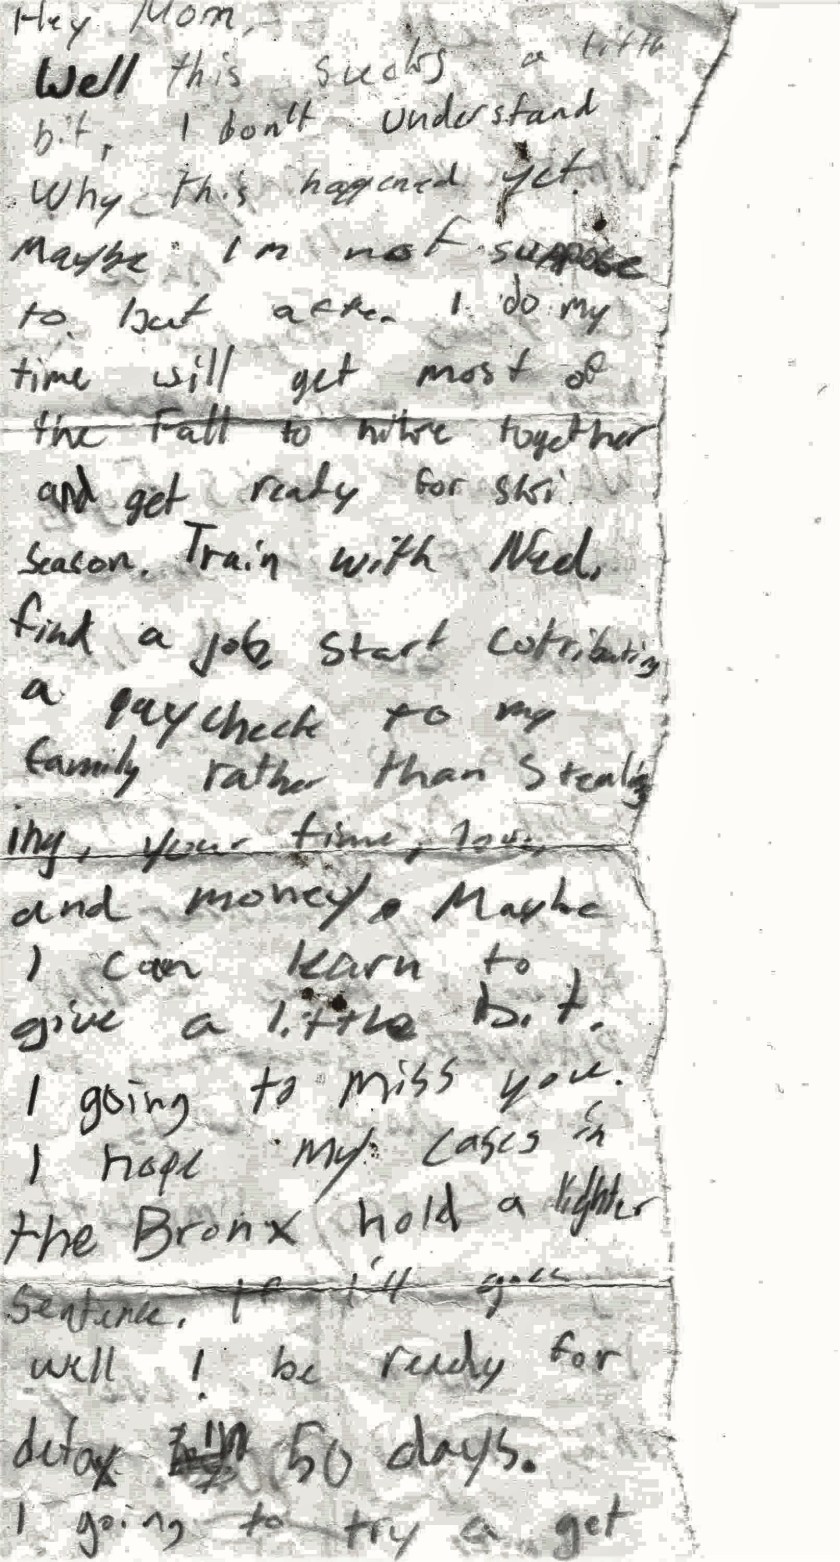 Hey Mom,
Well this sucks a little
bit, I don't understand
Why this happened yet.
Maybe I'm not suppose
to. but after I do my
time will get most of
the Fall to hike together
and get ready for ski
season. Train with Ned,
find a job start cotributing
a paycheck to my
family rather than stealing
ing, your time, love
and money. Maybe
I can learn to
give a little bit.
I going to miss you.
I hope my cases in
the Bronx hold a lighter
sentence. If all goes
well I be ready for
detox in 50 days.
I going to try a get